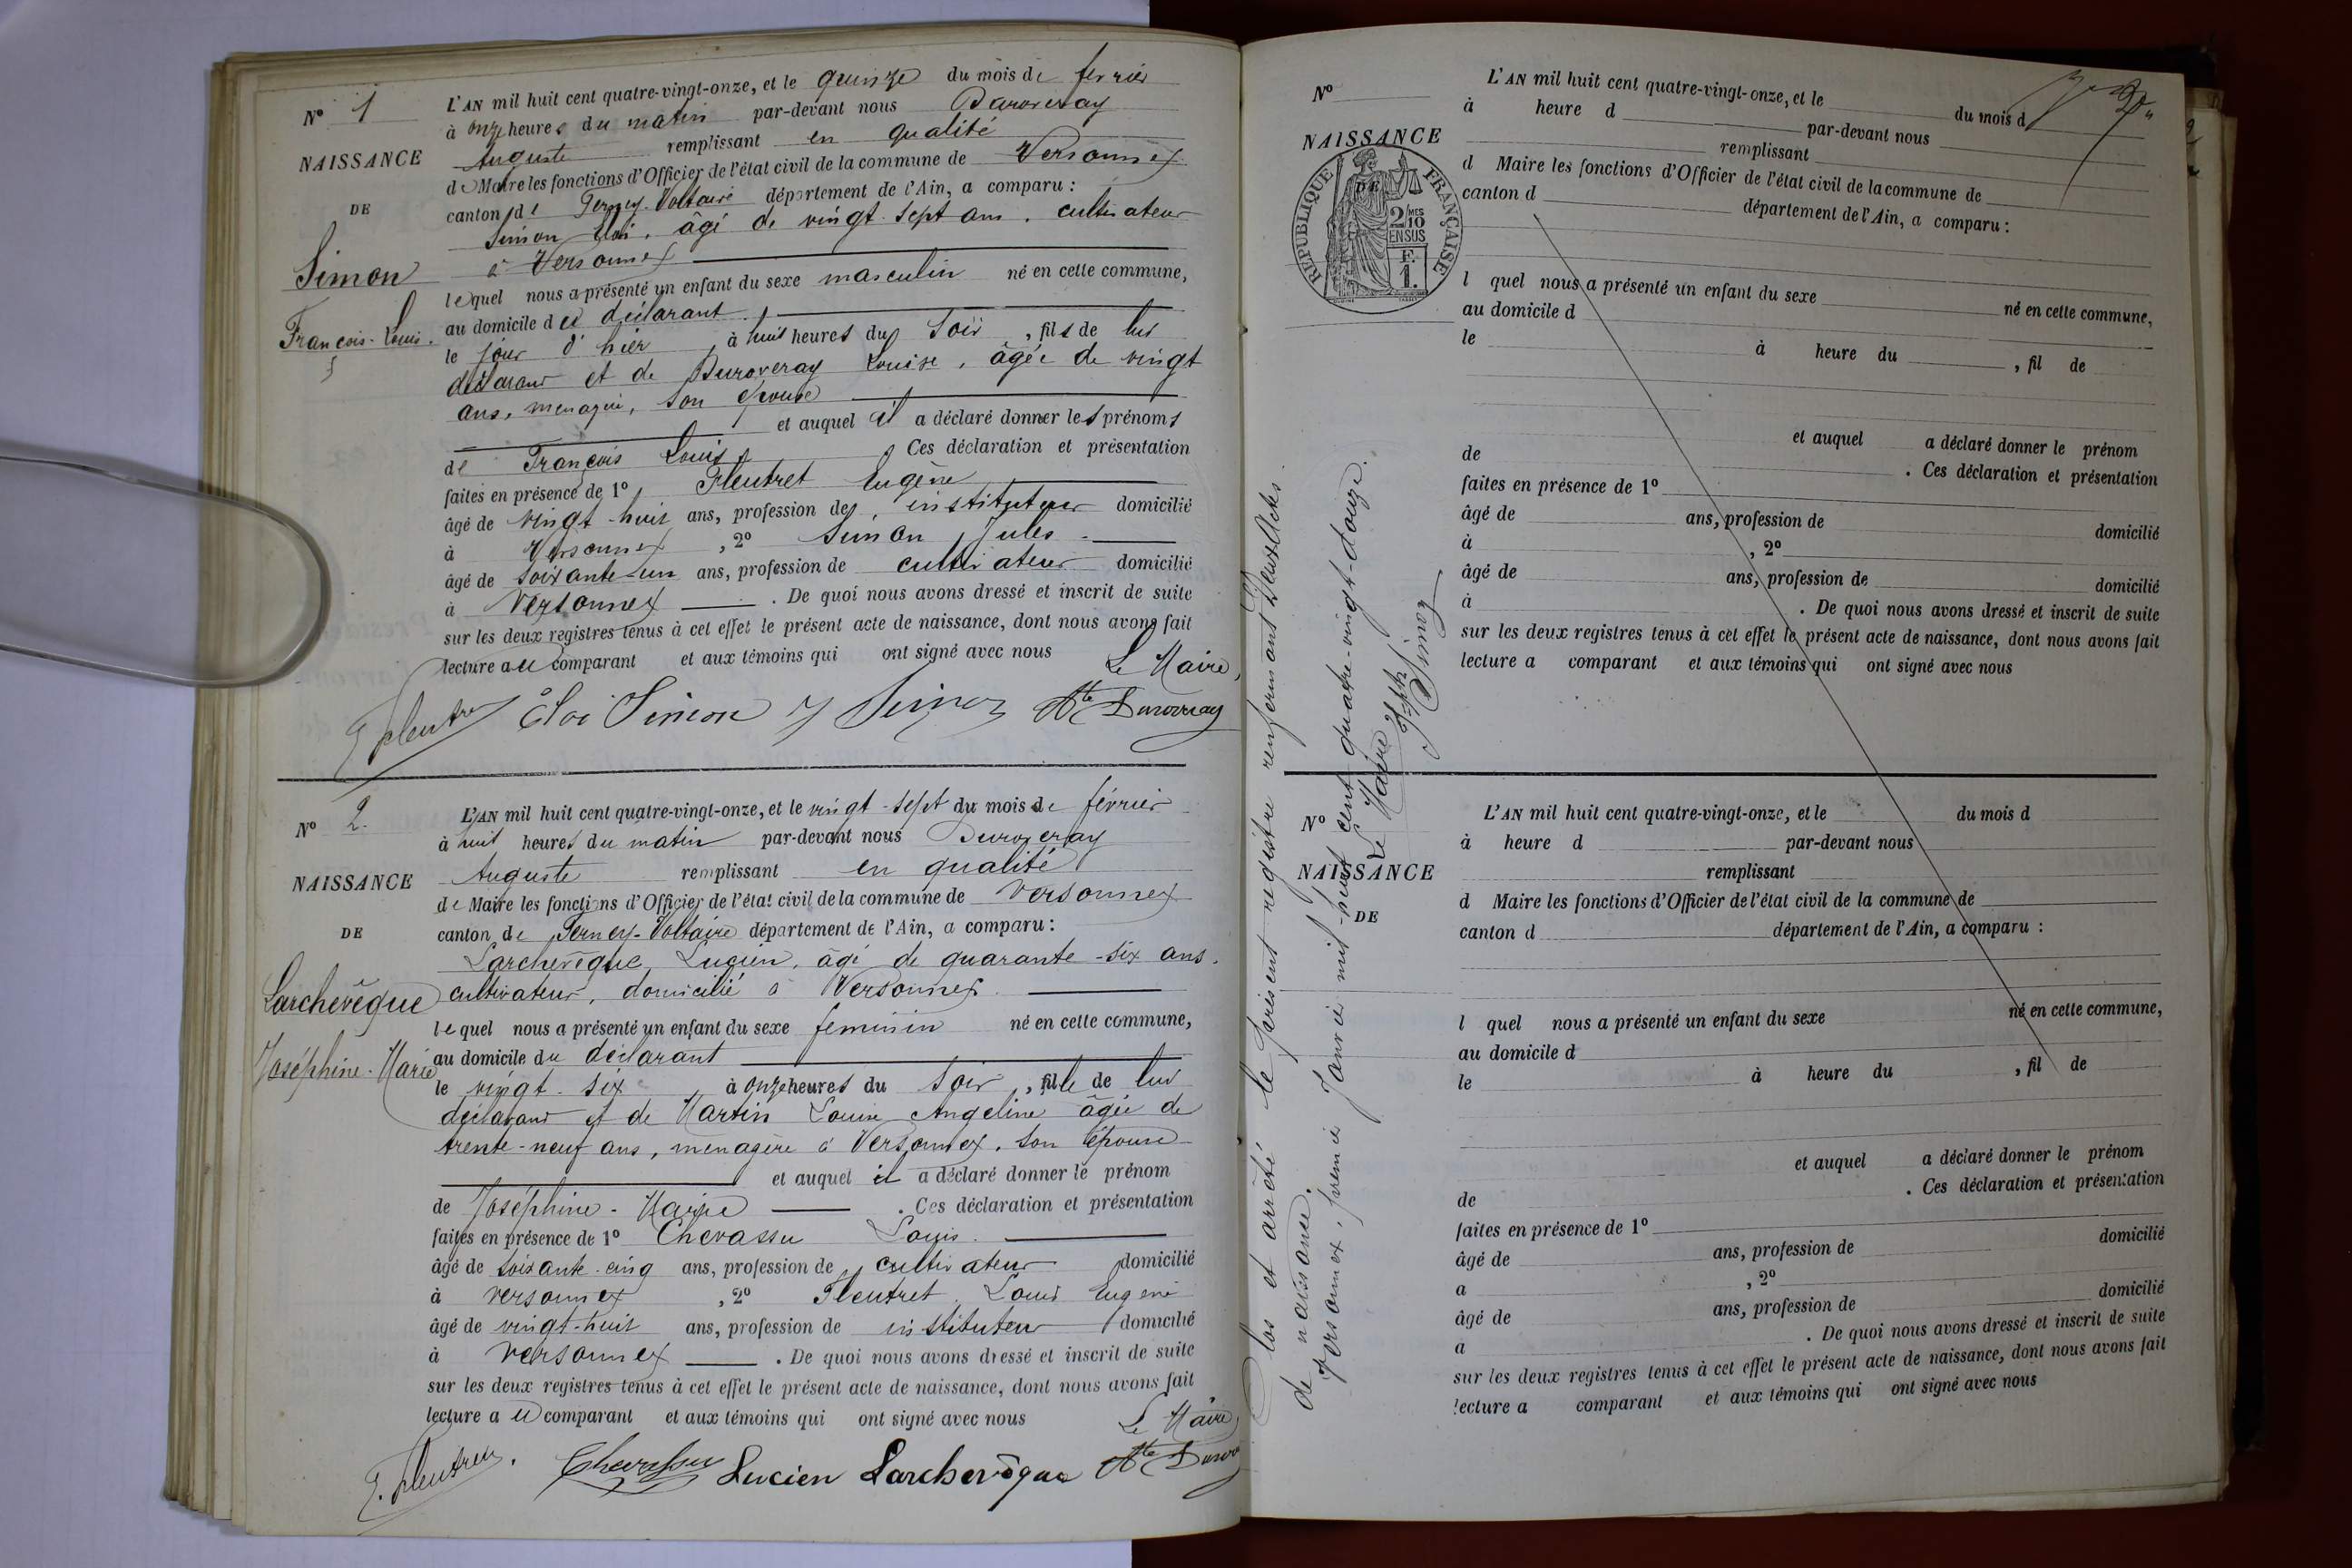 N° 1
NAISSANCE
DE
Simon
François-Louis.
L'AN mil huit cent quatre-vingt-onze, et le quinze du mois de février
à onze heures du matin par-devant nous Duroveray
Auguste remplissant en qualité
de Maire les fonctions d'Officier de l'état civil de la commune de Versonnex
canton de Ferney-Voltaire département de l'Ain, a comparu :
Simon Eloi, âgé de vingt-sept ans, cultivateur
à Versonnex
lequel nous a présenté un enfant du sexe masculin né en cette commune,
au domicile du déclarant
le jour d'hier à huit heures du soir, fils de lui
déclarant et de Duroveray Louise, âgée de vingt
ans, menagère, son épouse
et auquel il a déclaré donner les prénoms
de François Louis. Ces déclaration et présentation
faites en présence de 1° Fleutret Eugène
âgé de vingt-huit ans, profession de instituteur domicilié
à Versonnex, 2° Simon Jules
âgé de soixante-un ans, profession de cultivateur domicilié
à Versonnex. De quoi nous avons dressé et inscrit de suite
sur les deux registres tenus à cet effet le présent acte de naissance, dont nous avons fait
lecture au comparant et aux témoins qui ont signé avec nous
Le Maire,
E. Fleutret Eloi Simon J Simon Ate Duroveray
N° 2.
NAISSANCE
DE
Larchevêque
Joséphine-Marie
L'AN mil huit cent quatre-vingt-onze, et le vingt-sept du mois de février
à huit heures du matin par-devant nous Duroveray
Auguste remplissant en qualité
de Maire les fonctions d'Officier de l'état civil de la commune de Versonnex
canton de Ferney-Voltaire département de l'Ain, a comparu :
Larchevêque Lucien, âgé de quarante-six ans,
cultivateur, domicilié à Versonnex
lequel nous a présenté un enfant du sexe feminin né en cette commune,
au domicile du déclarant
le vingt-six à onze heures du soir, fille de lui
déclarant et de Martin Louise Angeline âgée de
trente-neuf ans, menagère à Versonnex, son épouse
et auquel il a déclaré donner le prénom
de Joséphine-Marie. Ces déclaration et présentation
faites en présence de 1° Chevassu Louis
âgé de soixante-cinq ans, profession de cultivateur domicilié
à Versonnex, 2° Fleutret Louis Eugène
âgé de vingt-huit ans, profession de instituteur domicilié
à Versonnex. De quoi nous avons dressé et inscrit de suite
sur les deux registres tenus à cet effet le présent acte de naissance, dont nous avons fait
lecture au comparant et aux témoins qui ont signé avec nous
Le Maire
E. Fleutret. Chevassu Lucien Larchevêque Ate Durov
Clos et arrêté le présent registre renfermant Deux Actes
de naissance.
Versonnex, premier Janvier mil-huit cent quatre-vingt-douze.
Le Maire
Jph Simon
N°
NAISSANCE
DE
RÉPUBLIQUE FRANÇAISE
2/10 MES
EN SUS
F.
1.
L'AN mil huit cent quatre-vingt-onze, et le du mois d
à heure d par-devant nous
remplissant
d Maire les fonctions d'Officier de l'état civil de la commune de
canton d département de l'Ain, a comparu :
l quel nous a présenté un enfant du sexe né en cette commune,
au domicile d
le à heure du , fil de
et auquel a déclaré donner le prénom
de . Ces déclaration et présentation
faites en présence de 1°
âgé de ans, profession de domicilié
à , 2°
âgé de ans, profession de domicilié
à . De quoi nous avons dressé et inscrit de suite
sur les deux registres tenus à cet effet le présent acte de naissance, dont nous avons fait
lecture a comparant et aux témoins qui ont signé avec nous
N°
NAISSANCE
DE
L'AN mil huit cent quatre-vingt-onze, et le du mois d
à heure d par-devant nous
remplissant
d Maire les fonctions d'Officier de l'état civil de la commune de
canton d département de l'Ain, a comparu :
l quel nous a présenté un enfant du sexe né en cette commune,
au domicile d
le à heure du , fil de
et auquel a déclaré donner le prénom
de . Ces déclaration et présentation
faites en présence de 1°
âgé de ans, profession de domicilié
a , 2°
âgé de ans, profession de domicilié
a . De quoi nous avons dressé et inscrit de suite
sur les deux registres tenus à cet effet le présent acte de naissance, dont nous avons fait
lecture a comparant et aux témoins qui ont signé avec nous